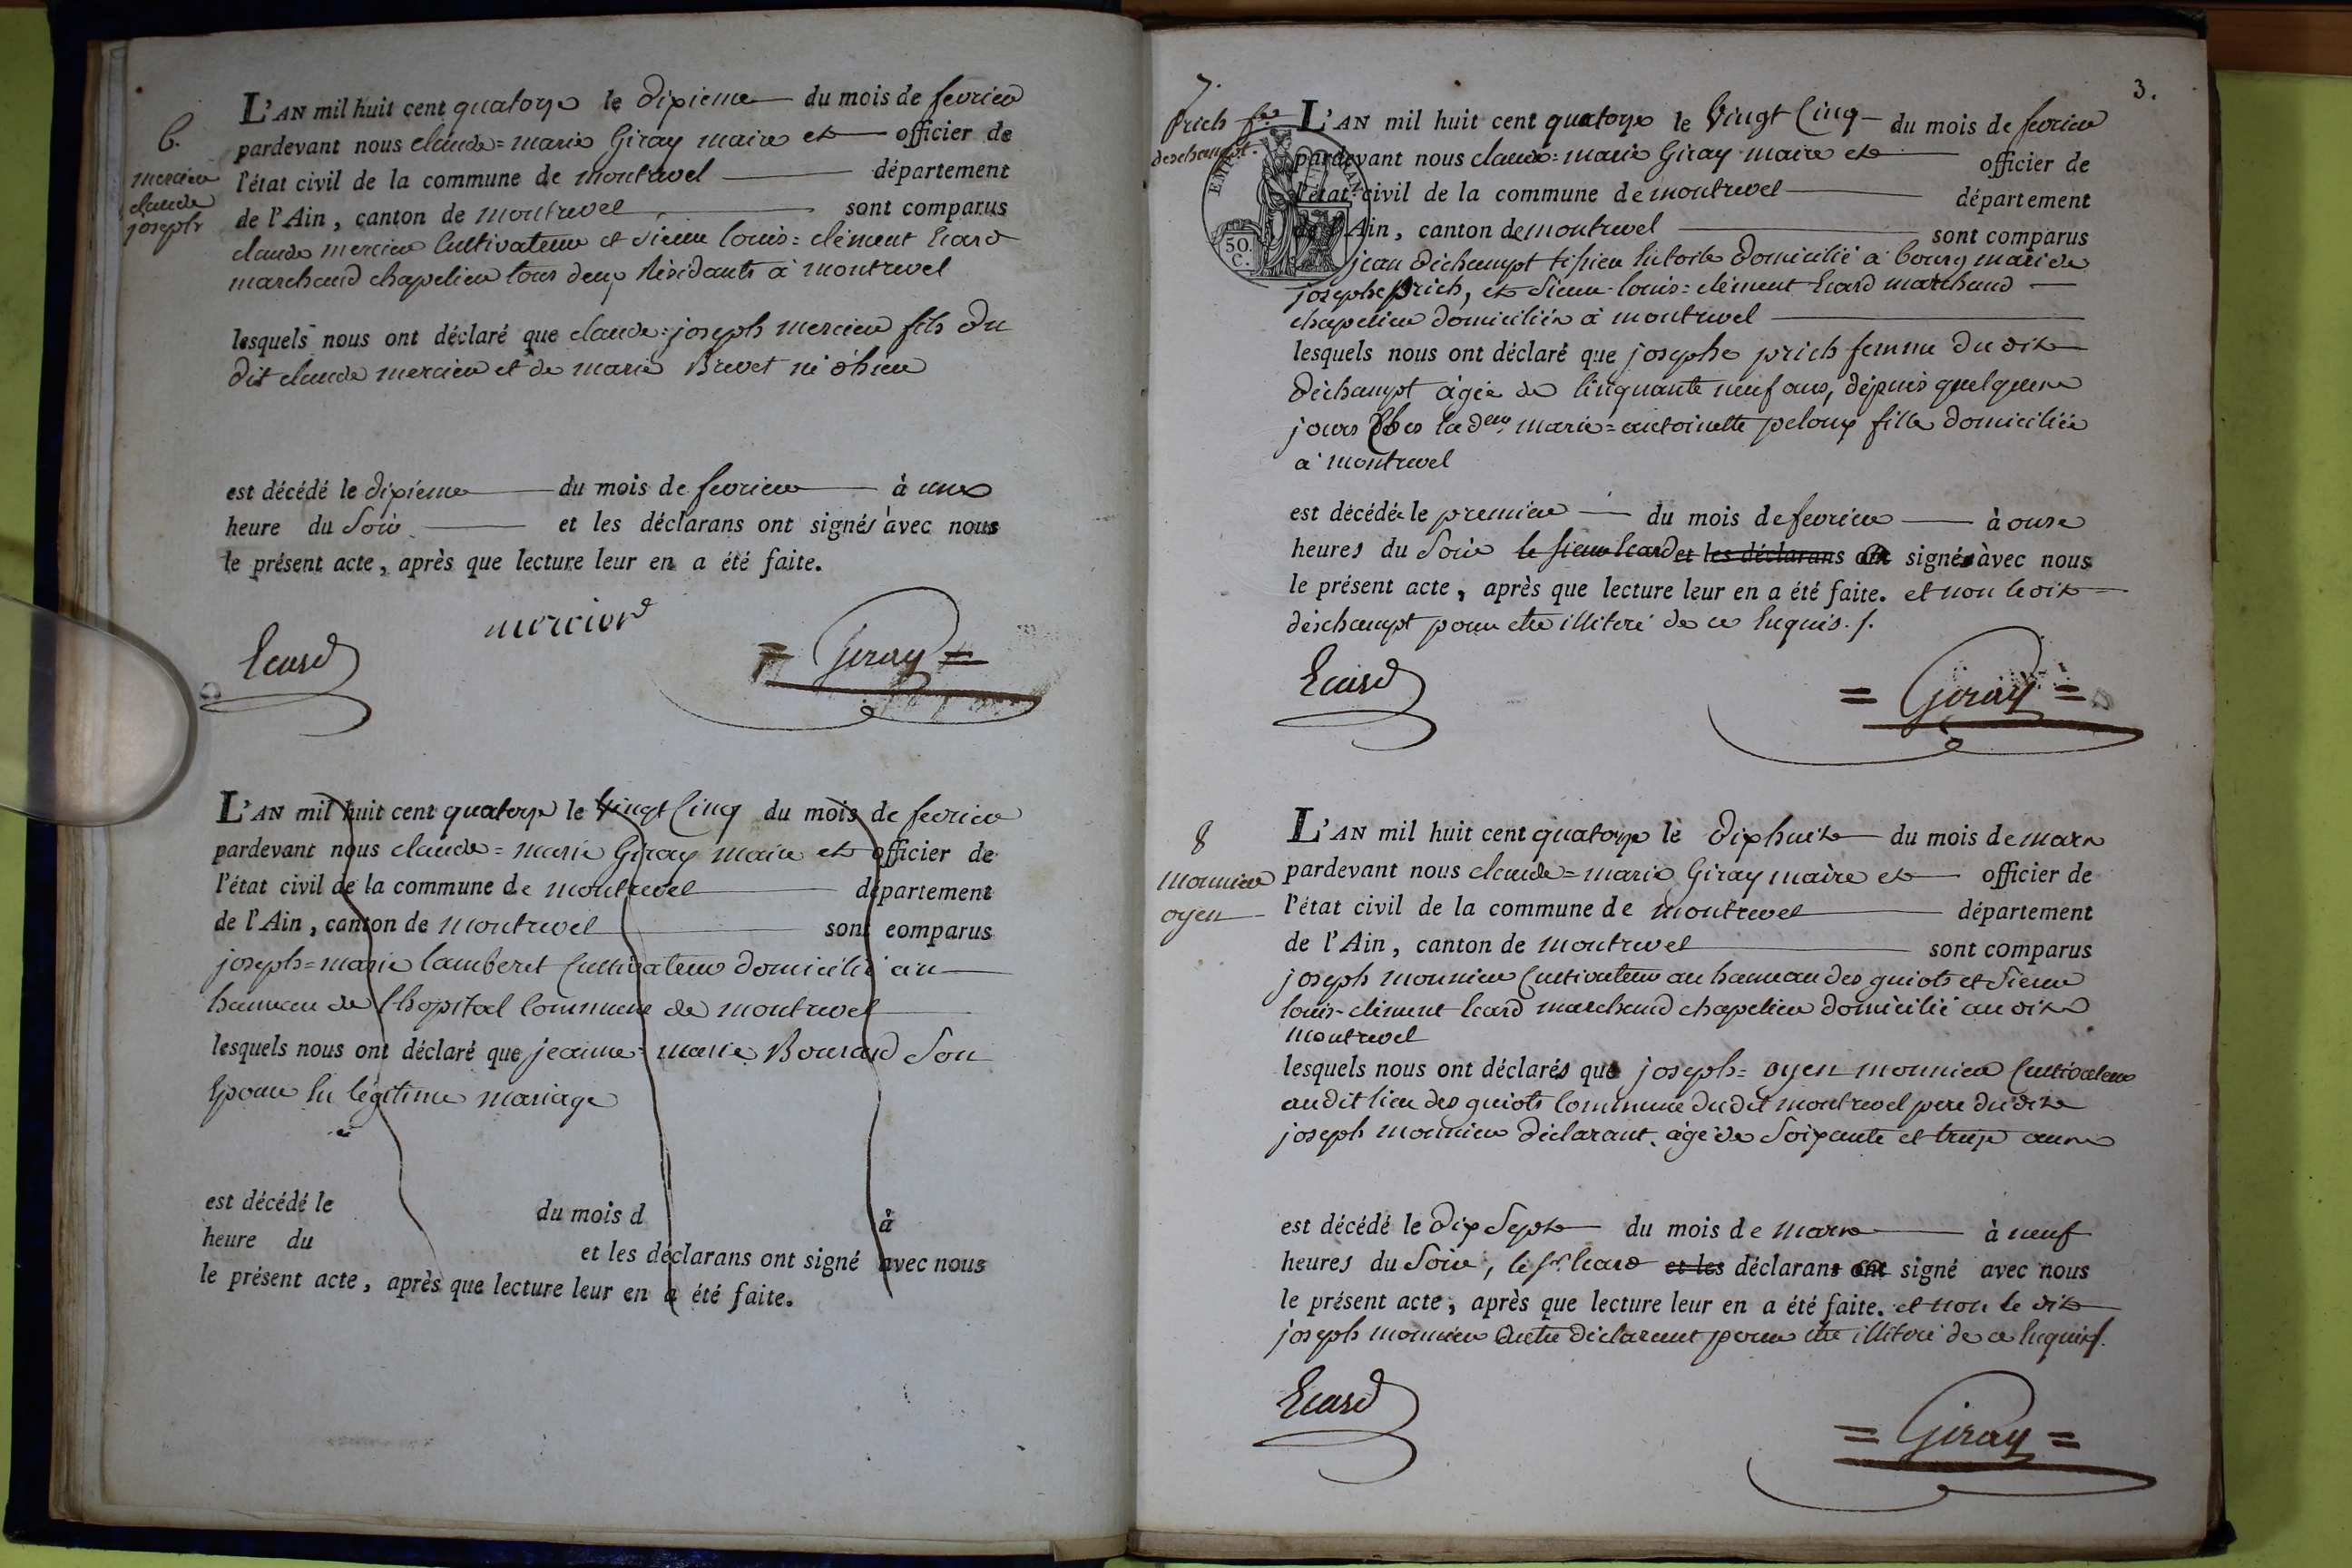 6.
mercier
claude
joseph
L'AN mil huit cent quatorze le dixieme du mois de fevrier
pardevant nous claude=marie Giray maire et officier de
l'état civil de la commune de montrevel département
de l'Ain, canton de montrevel sont comparus
claude mercier Cultivateur et Sieur louis=clément Ecard
marchand chapelier tous deux Résidants à montrevel
lesquels nous ont déclaré que claude=joseph mercier fils du
dit claude mercier et de marie Brevet né d'hier
est décédé le dixieme du mois de fevrier à une
heure du Soir et les déclarans ont signés avec nous
le présent acte, après que lecture leur en a été faite.
Ecard
mercier
= Giray =
L'AN mil huit cent quatorze le Vingt Cinq du mois de fevrier
pardevant nous claude=marie Giray maire et officier de
l'état civil de la commune de montrevel département
de l'Ain, canton de montrevel sont comparus
joseph=marie lamberet Cultivateur domicilié au
hameau de l'hopital Commune de montrevel
lesquels nous ont déclaré que jeanne=marie Bourard Son
Epoux En légitime mariage
est décédé le du mois d à
heure du et les déclarans ont signé avec nous
le présent acte, après que lecture leur en a été faite.
3.
7.
prich fe
deschampt.
EMP
50.
C.
L'AN mil huit cent quatorze le Vingt Cinq du mois de fevrier
pardevant nous claude=marie Giray maire et officier de
l'état civil de la commune de montrevel département
de l'Ain, canton de montrevel sont comparus
jean déchampt tisseur En toile domicilié à bourg mari de
josephe prich, et Sieur louis=clément Ecard marchand
chapelier domicilié à montrevel
lesquels nous ont déclaré que josephe prich femme du dit
déchampt agée de Cinquante neuf ans, depuis quelques
jours Chez la dem marie=antoinette peloux fille domiciliée
a montrevel
est décédée le premier du mois de fevrier à onze
heures du Soir le sieur Ecard et les déclarans ont signés avec nous
le présent acte, après que lecture leur en a été faite. et non le dit
deschampt pour etre illiteré de ce Enquis.
Ecard
= Giray =
8
Monnier
oyen
L'AN mil huit cent quatorze le dixhuit du mois de mars
pardevant nous claude=marie Giray maire et officier de
l'état civil de la commune de montrevel département
de l'Ain, canton de montrevel sont comparus
joseph monnier Cultivateur au hameau des guiots et Sieur
louis-clément Ecard marchand chapelier domicilié au dit
montrevel
lesquels nous ont déclarés que joseph=oyen monnier Cultivateur
audit lieu des guiots Commune dudit montrevel pere du dit
joseph monnier déclarant. agé de Soixante et treize ans
est décédé le dix Sept du mois de mars à neuf
heures du Soir, le Sr Ecard et les déclarans ont signé avec nous
le présent acte, après que lecture leur en a été faite. et non le dit
joseph monnier autre déclarant pour etre illiteré de ce Enquis.
Ecard
= Giray =